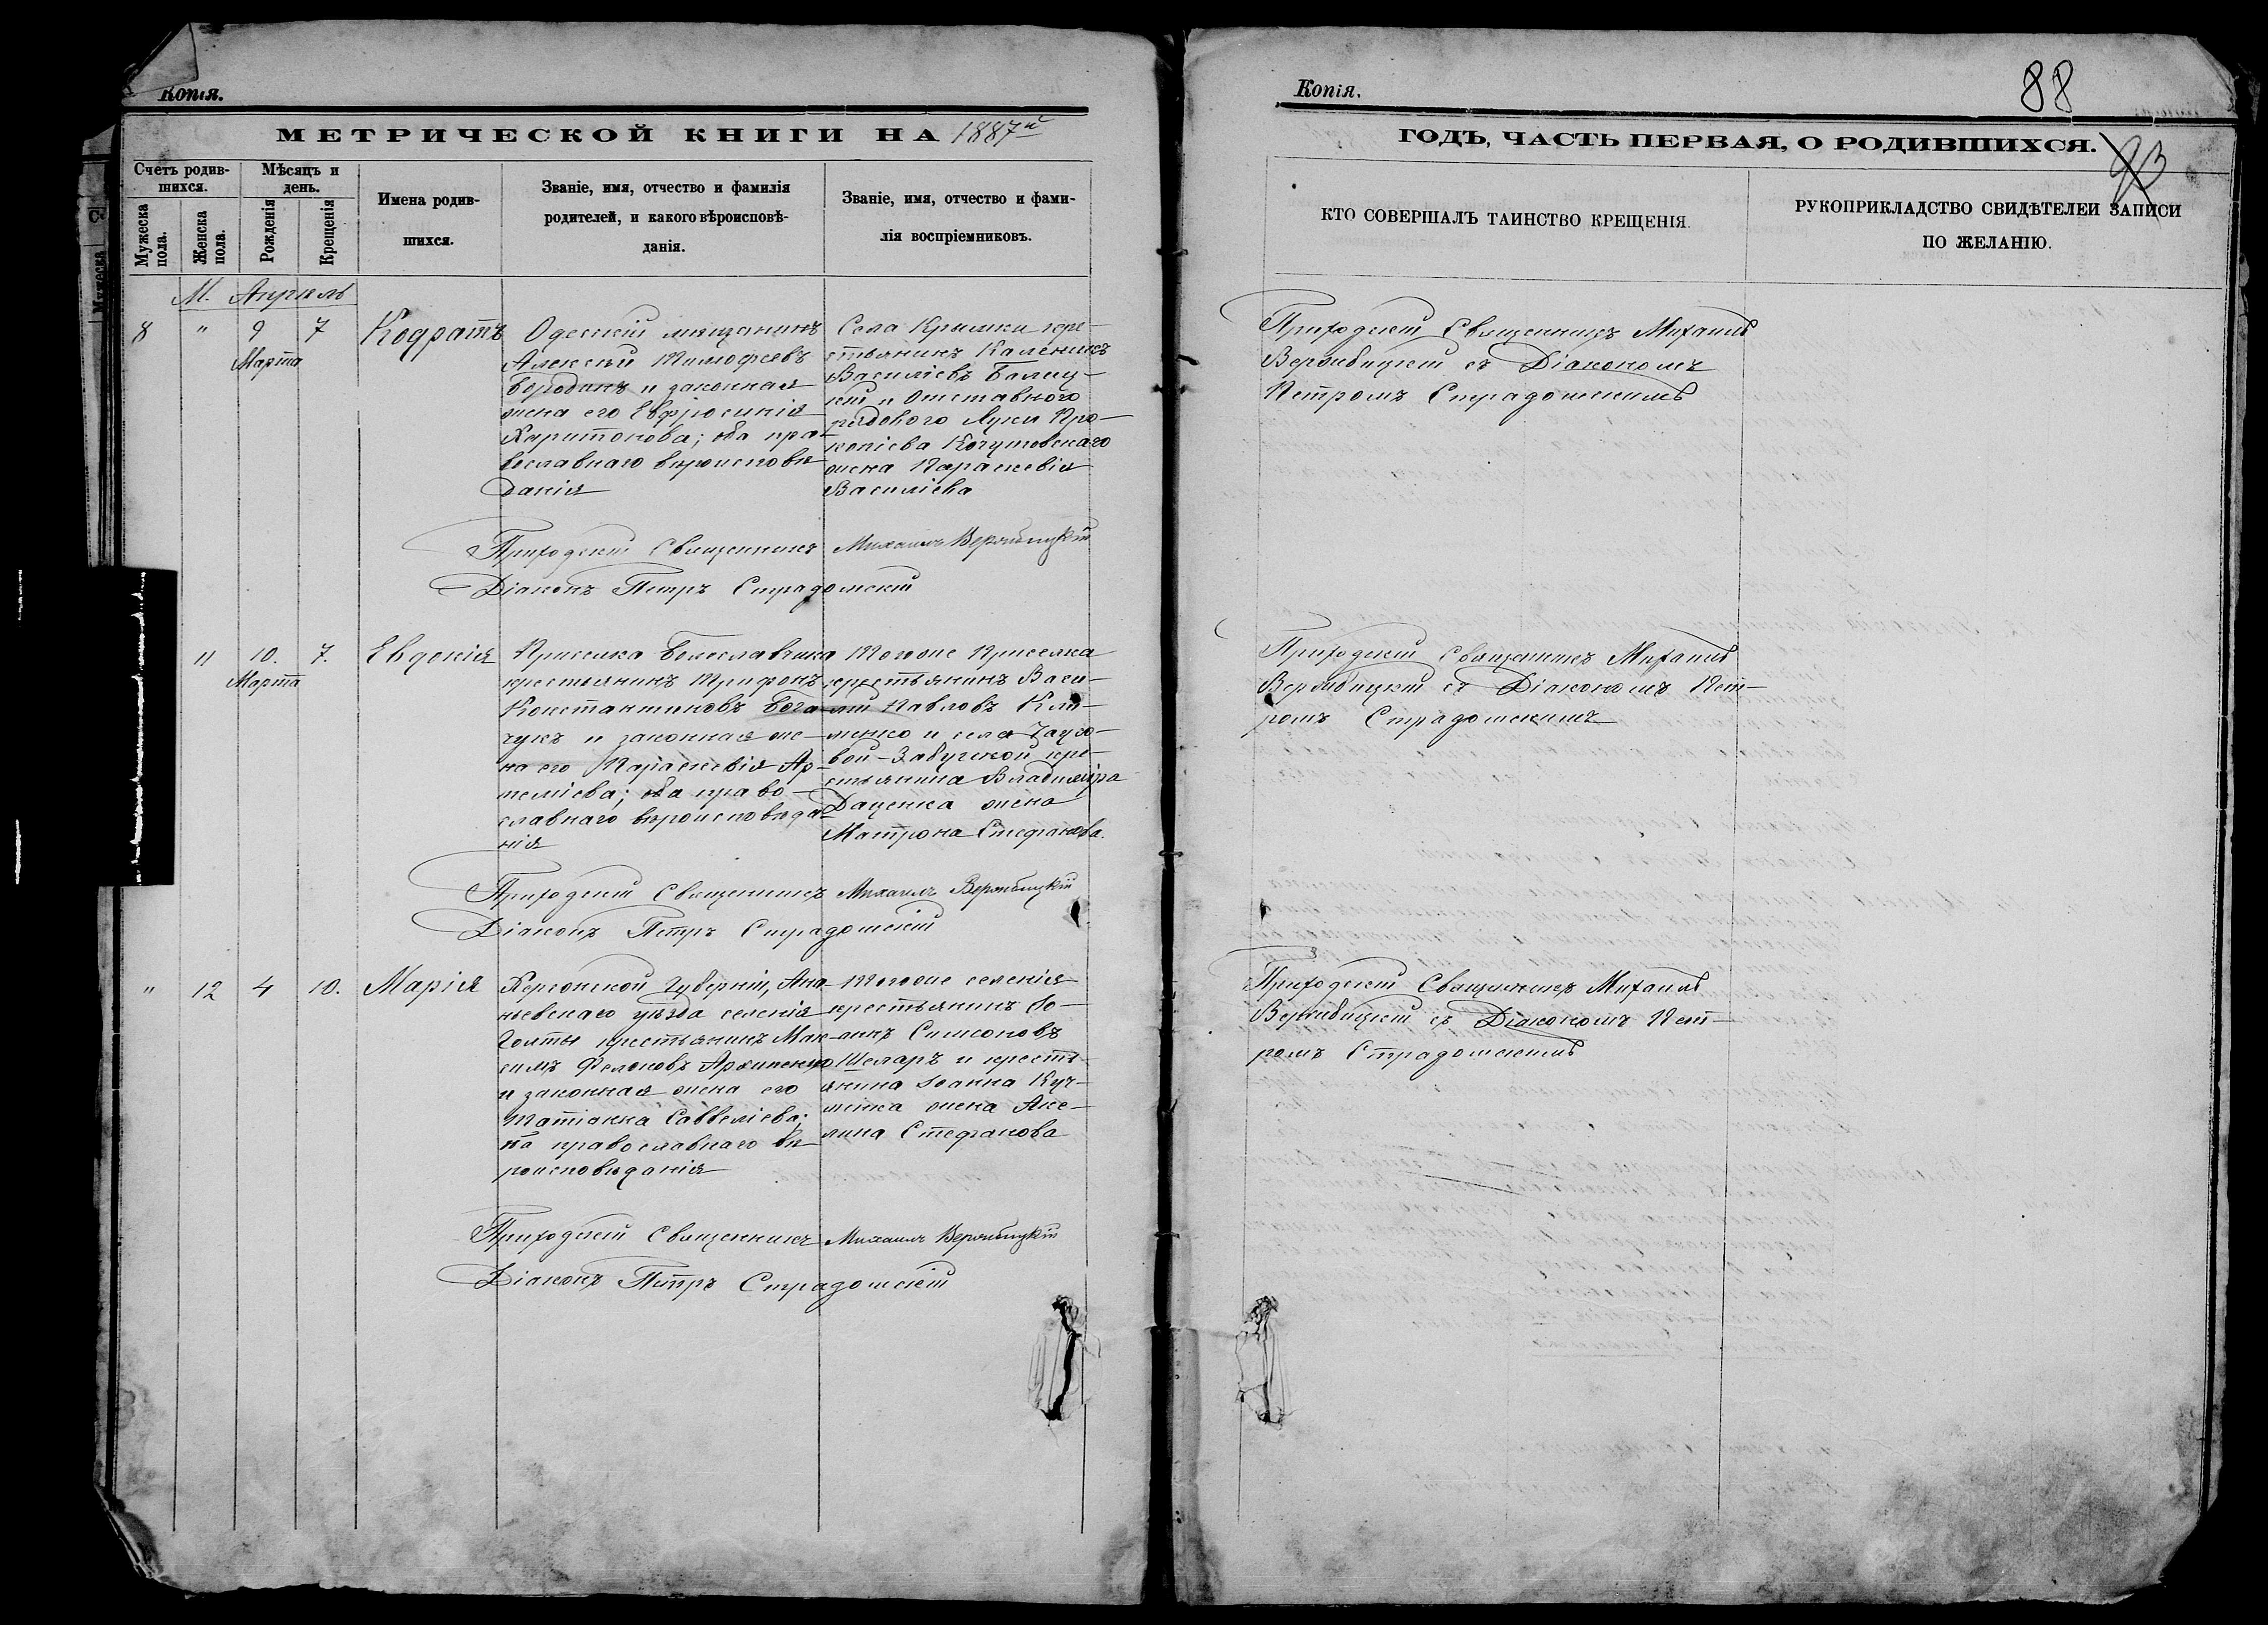 Копія.
МЕТРИЧЕСКОЙ КНИГИ НА 1887й
Счетъ родив-
шихся.
Мѣсяцъ и
день.
Мужеска
пола.
Женска
пола.
Рожденія
Крещенія
Имена родив-
шихся.
Званіе, имя, отчество и фамилія
родителей, и какого вѣроисповѣ-
данія.
Званіе, имя, отчество и фами-
лія воспріемниковъ.
М. Апрѣль
8 " 9 7
Марта
Кодратъ
Одесскій мѣщанинъ
Алексѣй Тимофеевъ
Бородинъ и законная
жена его Евфросинія
Харитонова; оба пра-
вославнаго вѣроисповѣ
данія
Села Крымки кре-
стьянинъ Каленикъ
Василіевъ Балиц-
кій и отставного
рядового Луки Про-
копіева Кочутовскаго
жена Параскевія
Василіева
Приходскій Священникъ Михаилъ Вержбицкій
Діаконъ Петръ Страдомскій
11 10. 7.
Марта
Евдокія
Приселка Болеславчика
крестьянинъ Трифонъ
Константиновъ Бога-
чукъ и законная же-
на его Параскевія Ар-
теміева; оба право-
славнаго вѣроисповѣда-
нія
Тогоже приселка
крестьянинъ Васи-
лій Павловъ Кли-
менко и села
вой-Забугской кре-
стьянина Владиміра
Даценка жена
Матрона Стефанова.
Приходскій Священникъ Михаилъ Вержбицкій
Діаконъ Петръ Страдомскій
" 12 4 10. Марія
Херсонской Губерніи, Ана-
ньевскаго уѣзда селенія
Голты крестьянинъ Мак-
симъ Филоновъ
и законная жена его
Татіана Саввеліева;
оба православнаго вѣ
роисповѣданія
Тогоже селенія
крестьянинъ Іо-
аннъ Симеоновъ
Шеларъ и кресть-
янина Іоанна Куч-
менка жена Аке-
лина Стефанова
Приходскій Священникъ Михаилъ Вержбицкій
Діаконъ Петръ Страдомскій
Копія.
88
93
ГОДЪ, ЧАСТЬ ПЕРВАЯ, О РОДИВШИХСЯ.
КТО СОВЕРШАЛЪ ТАИНСТВО КРЕЩЕНІЯ.
РУКОПРИКЛАДСТВО СВИДѢТЕЛЕЙ ЗАПИСИ
ПО ЖЕЛАНІЮ.
Приходскій Священникъ Михаилъ
Вержбицкій съ Діакономъ
Петромъ Страдомскимъ
Приходскій Священникъ Михаилъ
Вержбицкій съ Діакономъ Пет-
ромъ Страдомскимъ
Приходскій Священникъ Михаилъ
Вержбицкій съ Діакономъ Пет-
ромъ Страдомскимъ